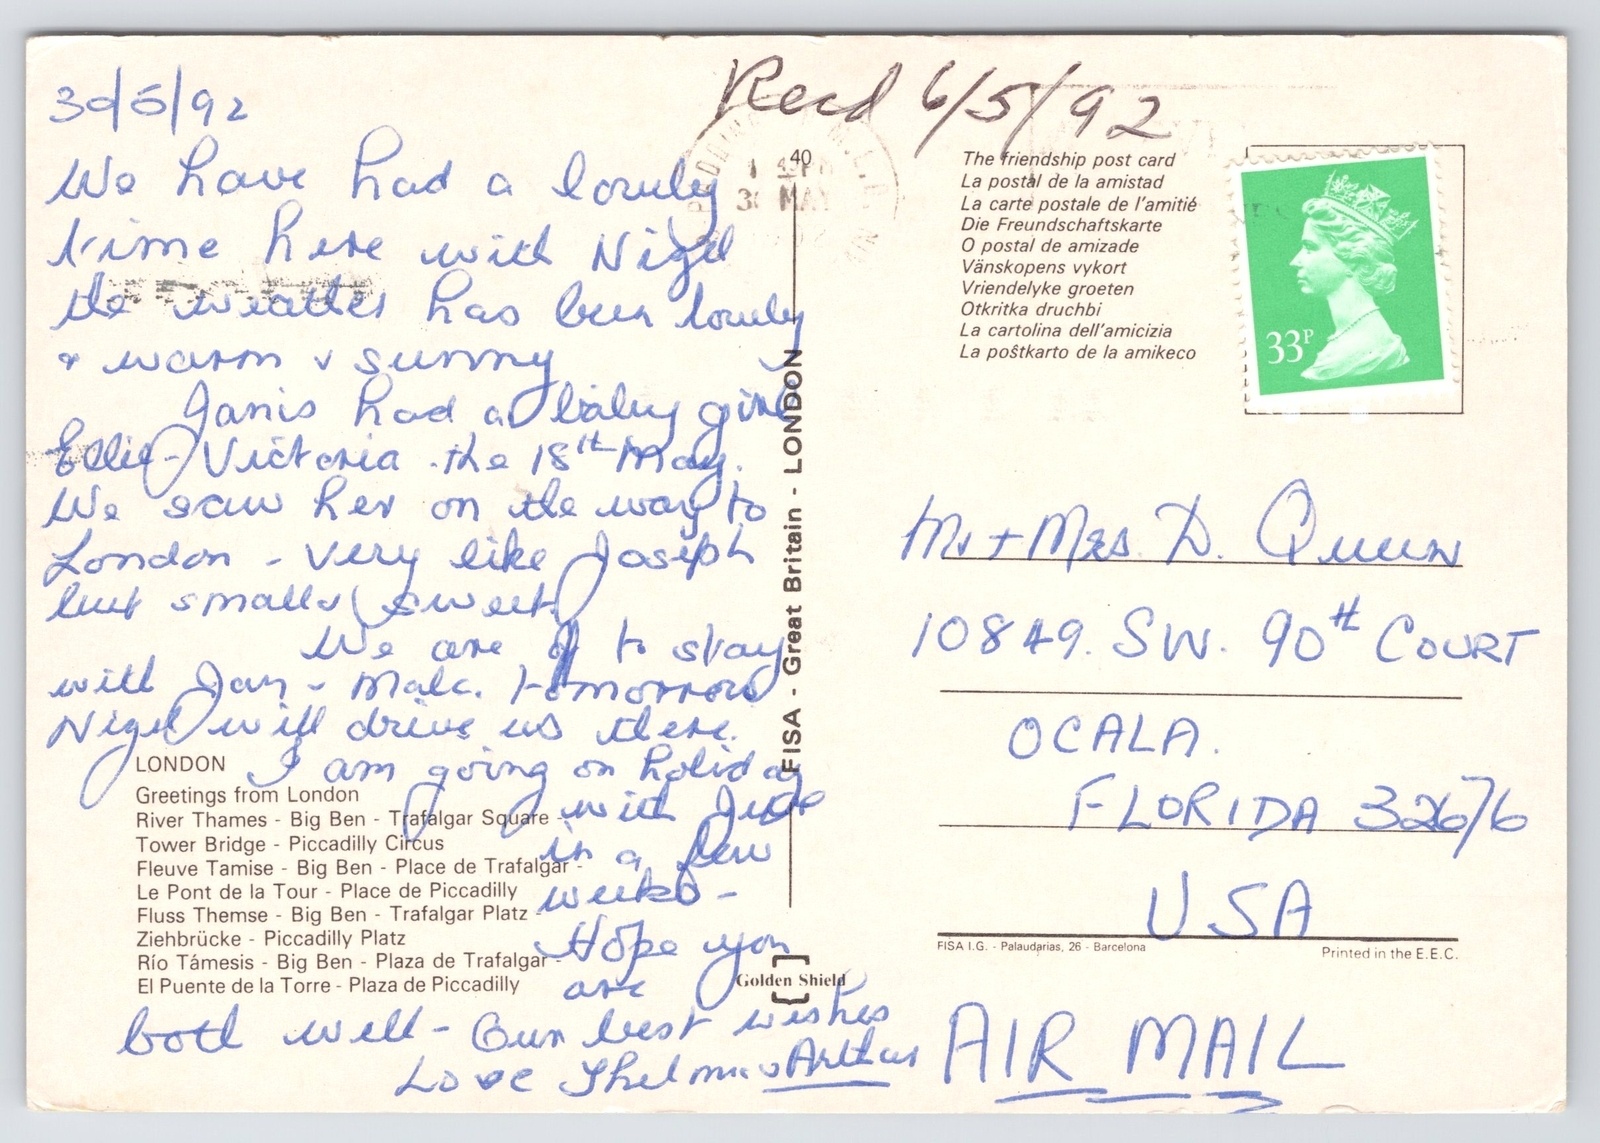 30/5/92
We have had a lovely
time here with Nigel
the weather has been lovely
& warm & sunny
Janis had a baby girl
Ellie-Victoria the 18th May.
We saw her on the way to
London - very like Joseph
but smaller (sweet)
We are off to stay
with Jan - Malc. tomorrow
Nigel will drive us there.
I am going on holiday
with
in a few
weeks -
Hope you
are
both well - Our best wishes
Love Thelma & Arthur
LONDON
Greetings from London
River Thames - Big Ben - Trafalgar Square -
Tower Bridge - Piccadilly Circus
Fleuve Tamise - Big Ben - Place de Trafalgar -
Le Pont de la Tour - Place de Piccadilly
Fluss Themse - Big Ben - Trafalgar Platz -
Ziehbrücke - Piccadilly Platz
Río Támesis - Big Ben - Plaza de Trafalgar -
El Puente de la Torre - Plaza de Piccadilly
FISA - Great Britain - LONDON
40
Golden Shield
Recd 6/5/92
PADDINGTON
30 MAY
The friendship post card
La postal de la amistad
La carte postale de l'amitié
Die Freundschaftskarte
O postal de amizade
Vänskopens vykort
Vriendelyke groeten
Otkritka druchbi
La cartolina dell'amicizia
La poŝtkarto de la amikeco
33P
Mr + Mrs D. Queen
10849. SW. 90th COURT
OCALA.
FLORIDA 32676
USA
FISA I.G. - Palaudarias, 26 - Barcelona
Printed in the E.E.C.
AIR MAIL